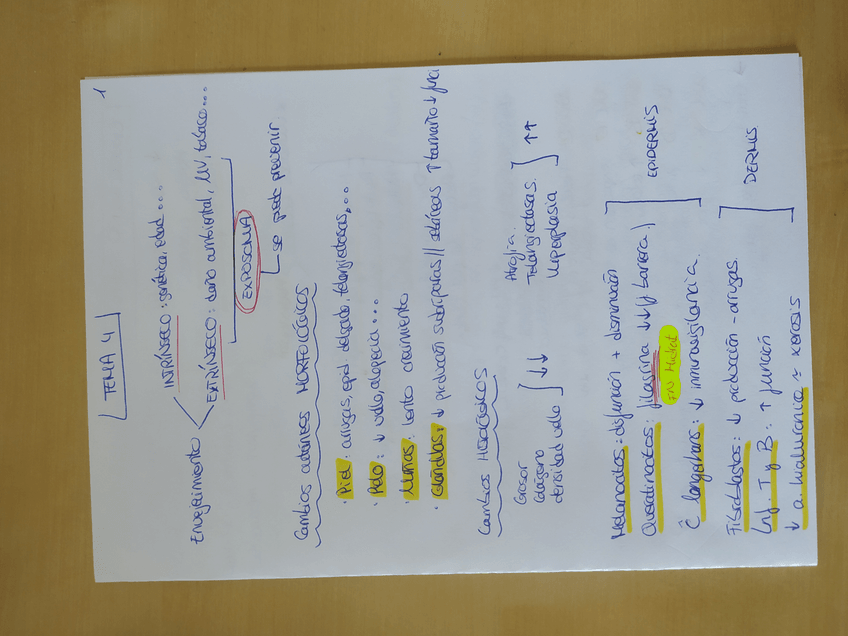 1
TEMA 4
Envejecimiento
INTRÍNSECO: genética, edad...
EXTRÍNSECO: daño ambiental, UV, tabaco...
EXPOSOMA
se puede prevenir
Cambios cutáneos MORFOLÓGICOS
· Piel: arrugas, epid delgada, telangiectasias,...
· Pelo: ↓ vello, alopecia...
· Uñas: lento crecimiento
· Glándulas: ↓ producción sudoríparas // sebáceas ↑ tamaño ↓ func
Cambios HISTOLÓGICOS
Grosor
Colágeno
densidad vello
↓↓
Atrofia.
Telangiectasias.
Hiperplasia
↑↑
Melanocitos: disfunción + disminución
Queratinocitos: filagrina ↓↓ (barrera)
FN Hidrat
C langerhans: ↓ inmunovigilancia.
EPIDERMIS
Fibroblastos: ↓ producción - arrugas.
Linf. T y B: ↑ función
↓ a. hialurónico = xerosis
DERMIS